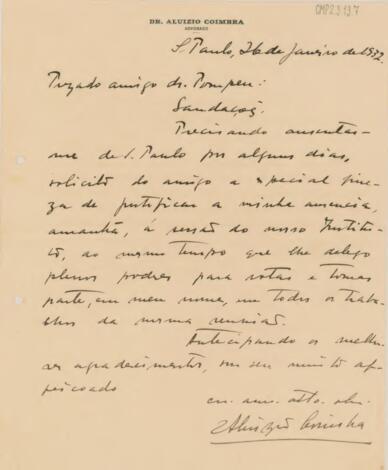 DR. ALUIZIO COIMBRA
ADVOGADO
CMP2.3.19.7
S. Paulo, 26 de Janeiro de 1932.
Prezado amigo dr. Pompeu:
Saudações.
Precisando ausentar-
me de S. Paulo por alguns dias,
solicito do amigo a especial fine-
za de justificar a minha ausencia,
amanhã, á sessão do nosso Institu-
to, ao mesmo tempo que lhe delego
plenos poderes para votar e tomar
parte, em meu nome, em todos os traba-
lhos da mesma reunião.
Antecipando os melho-
res agradecimentos, sou seu muito af-
feiçoado
am. atto. obr.
Aluizio Coimbra